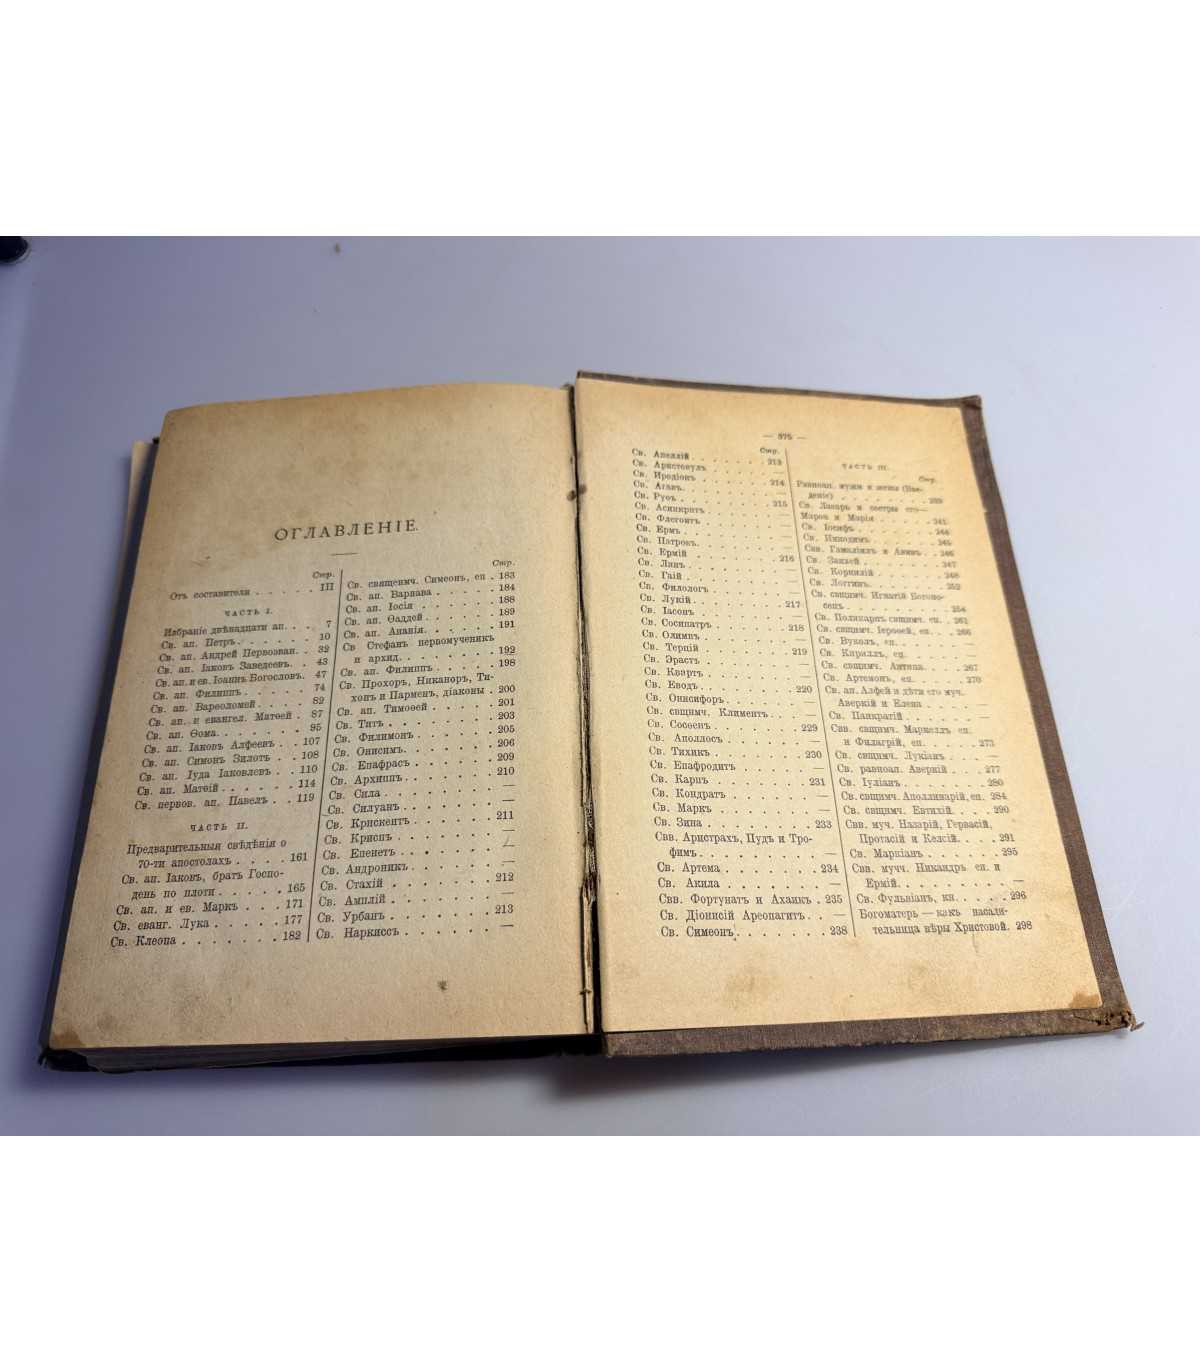 ОГЛАВЛЕНІЕ.
Стр.
Отъ составителя . . . . . III
ЧАСТЬ I.
Избраніе двѣнадцати ап. . . 7
Св. ап. Петръ. . . . . . . 10
Св. ап. Андрей Первозван. . 32
Св. ап. Іаковъ Заведеевъ. . 43
Св. ап. и ев. Іоаннъ Богословъ. 47
Св. ап. Филиппъ . . . . . 74
Св. ап. Варѳоломей . . . . 82
Св. ап. и евангел. Матѳей . 87
Св. ап. Ѳома. . . . . . . 95
Св. ап. Іаковъ Алфеевъ . . 107
Св. ап. Симонъ Зилотъ . . 108
Св. ап. Іуда Іаковлевъ . . . 110
Св. ап. Матѳій . . . . . . 114
Св. первов. ап. Павелъ . . 119
ЧАСТЬ II.
Предварительныя свѣдѣнія о
70-ти апостолахъ . . . . 161
Св. ап. Іаковъ, братъ Госпо-
день по плоти . . . . . 165
Св. ап. и ев. Маркъ . . . 171
Св. еванг. Лука . . . . . 177
Св. Клеопа . . . . . . . . 182
Стр.
Св. священмч. Симеонъ, еп . 183
Св. ап. Варнава . . . . . 184
Св. ап. Іосія . . . . . . 188
Св. ап. Ѳаддей . . . . . . 189
Св. ап. Ананія. . . . . . 191
Св Стефанъ первомученикъ
и архид. . . . . . . . . 192
Св. ап. Филиппъ. . . . . . 198
Св. Прохоръ, Никаноръ, Ти-
хонъ и Парменъ, діаконы . 200
Св. ап. Тимоѳей . . . . . 201
Св. Титъ . . . . . . . . 203
Св. Филимонъ . . . . . . 205
Св. Онисимъ. . . . . . . 206
Св. Епафрасъ . . . . . . 209
Св. Архиппъ . . . . . . . 210
Св. Сила . . . . . . . . —
Св. Силуанъ . . . . . . . —
Св. Крискентъ . . . . . . 211
Св. Криспъ . . . . . . . —
Св. Епенетъ . . . . . . . —
Св. Андроникъ . . . . . . —
Св. Стахій . . . . . . . 212
Св. Амплій . . . . . . . —
Св. Урбанъ . . . . . . . 213
Св. Наркиссъ . . . . . . —
— 375 —
Стр.
Св. Апеллій . . . . . . . 213
Св. Аристовулъ . . . . . . —
Св. Иродіонъ . . . . . . . 214
Св. Агавъ. . . . . . . . —
Св. Руѳъ . . . . . . . . 215
Св. Асинкритъ . . . . . . —
Св. Флегонтъ . . . . . . —
Св. Ермъ . . . . . . . . —
Св. Патровъ. . . . . . . —
Св. Ермій . . . . . . . 216
Св. Линъ . . . . . . . . —
Св. Гаій . . . . . . . . —
Св. Филологъ . . . . . . —
Св. Лукій . . . . . . . . 217
Св. Іасонъ . . . . . . . —
Св. Сосипатръ . . . . . . 218
Св. Олимпъ . . . . . . . —
Св. Терцій . . . . . . . 219
Св. Эрастъ . . . . . . . —
Св. Квартъ . . . . . . . —
Св. Еводъ . . . . . . . . 220
Св. Онисифоръ. . . . . . —
Св. свщимч. Климентъ . . . —
Св. Сосѳенъ . . . . . . . 229
Св. Аполлосъ . . . . . . —
Св. Тихикъ . . . . . . . 230
Св. Епафродитъ . . . . . —
Св. Карпъ . . . . . . . 231
Св. Кондратъ . . . . . . —
Св. Маркъ . . . . . . . —
Св. Зина . . . . . . . . 233
Свв. Аристрахъ, Пудъ и Тро-
фимъ. . . . . . . . . . —
Св. Артема . . . . . . . 234
Св. Акила . . . . . . . —
Свв. Фортунатъ и Ахаикъ . 235
Св. Діонисій Ареопагитъ . . —
Св. Симеонъ . . . . . . . 238
ЧАСТЬ III.
Стр.
Равноап. мужи и жены (Вве-
деніе) . . . . . . . . . 239
Св. Лазарь и сестры его—
Марѳа и Марія . . . . . . 241
Св. Іосифъ . . . . . . . 244
Св. Никодимъ . . . . . . 245
Свв. Гамаліилъ и Авивъ . . 246
Св. Закхей . . . . . . . 247
Св. Корнилій . . . . . . 248
Св. Логгинъ . . . . . . . 252
Св. свщимч. Игнатій Богоно-
сецъ . . . . . . . . . 254
Св. Поликарпъ свщимч. еп. . 261
Св. свщимч. Іероѳей, еп. . . 266
Св. Вуколъ, еп. . . . . . —
Св. Кириллъ, еп. . . . . —
Св. свщимч. Антипа. . . . 267
Св. Артемонъ, еп. . . . . 270
Св. ап. Алфей и дѣти его муч.
Аверкій и Елена . . . . —
Св. Панкратій . . . . . . —
Свв. свщимч. Маркеллъ еп.
и Филагрій, еп. . . . . 273
Св. свщимч. Лукіанъ . . . —
Св. равноап. Аверкій . . . 277
Св. Іуліанъ . . . . . . . 280
Св. свщимч. Аполлинарій, еп. 284
Св. свщимч. Евтихій. . . . 290
Свв. муч. Назарій, Гервасій,
Протасій и Келсій. . . . 291
Св. Маркіанъ . . . . . . 295
Свв. мучч. Никандръ еп. и
Ермій. . . . . . . . . —
Св. Фульвіанъ, кн. . . . . 296
Богоматерь — какъ насади-
тельница вѣры Христовой. 298